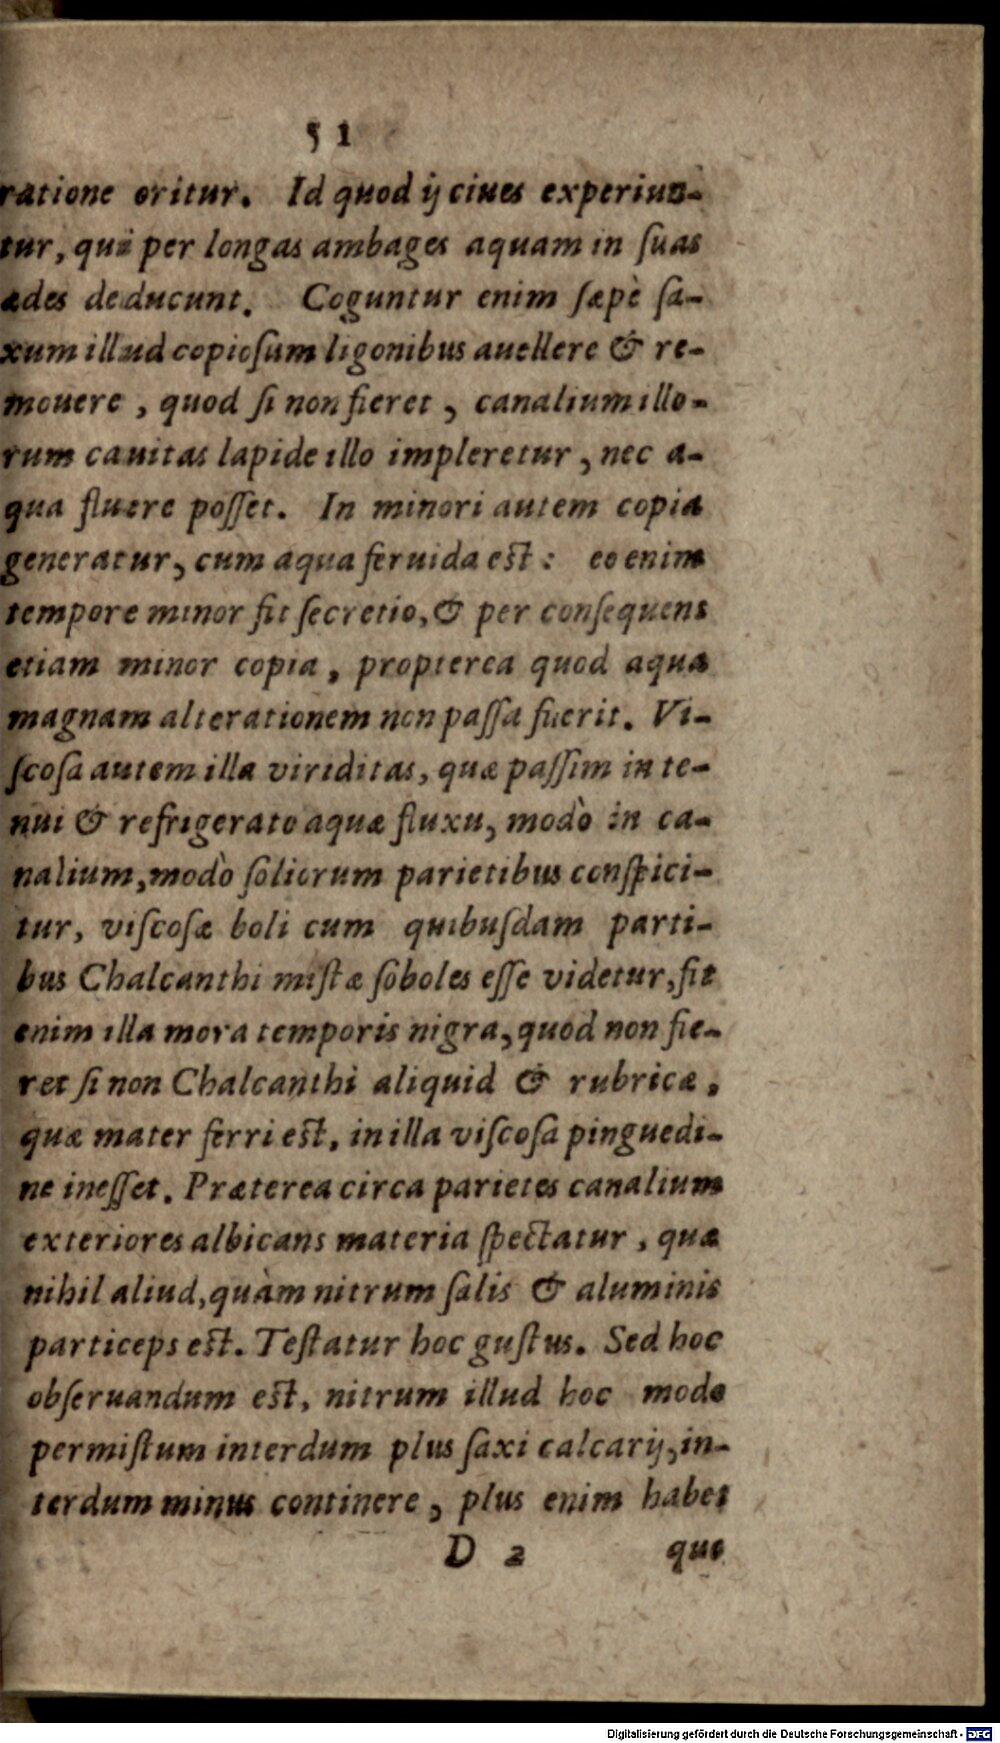 51
ratione oritur. Id quod ij ciues experiun-
tur, qui per longas ambages aquam in ſuas
ædes deducunt. Coguntur enim ſæpè ſa-
xum illud copioſum ligonibus auellere & re-
mouere, quod ſi non fieret, canalium illo-
rum cauitas lapide illo impleretur, nec a-
qua fluere poſſet. In minori autem copia
generatur, cum aqua feruida eſt: eo enim
tempore minor fit ſecretio, & per conſequens
etiam minor copia, propterea quod aqua
magnam alterationem non paſſa fuerit. Vi-
ſcoſa autem illa viriditas, quæ paſſim in te-
nui & refrigerato aquæ fluxu, modò in ca-
nalium, modò ſoliorum parietibus conſpici-
tur, viſcoſæ boli cum quibuſdam parti-
bus Chalcanthi miſtæ ſoboles eſſe videtur, fit
enim illa mora temporis nigra, quod non fie-
ret ſi non Chalcanthi aliquid & rubricæ,
quæ mater ferri eſt, in illa viſcoſa pinguedi-
ne ineſſet. Præterea circa parietes canalium
exteriores albicans materia ſpectatur, quæ
nihil aliud, quàm nitrum ſalis & aluminis
particeps eſt. Teſtatur hoc guſtus. Sed hoc
obſeruandum eſt, nitrum illud hoc modo
permiſtum interdum plus ſaxi calcarij, in-
terdum minus continere, plus enim habet
D 2 quo
Digitalisierung gefördert durch die Deutsche Forschungsgemeinschaft - DFG